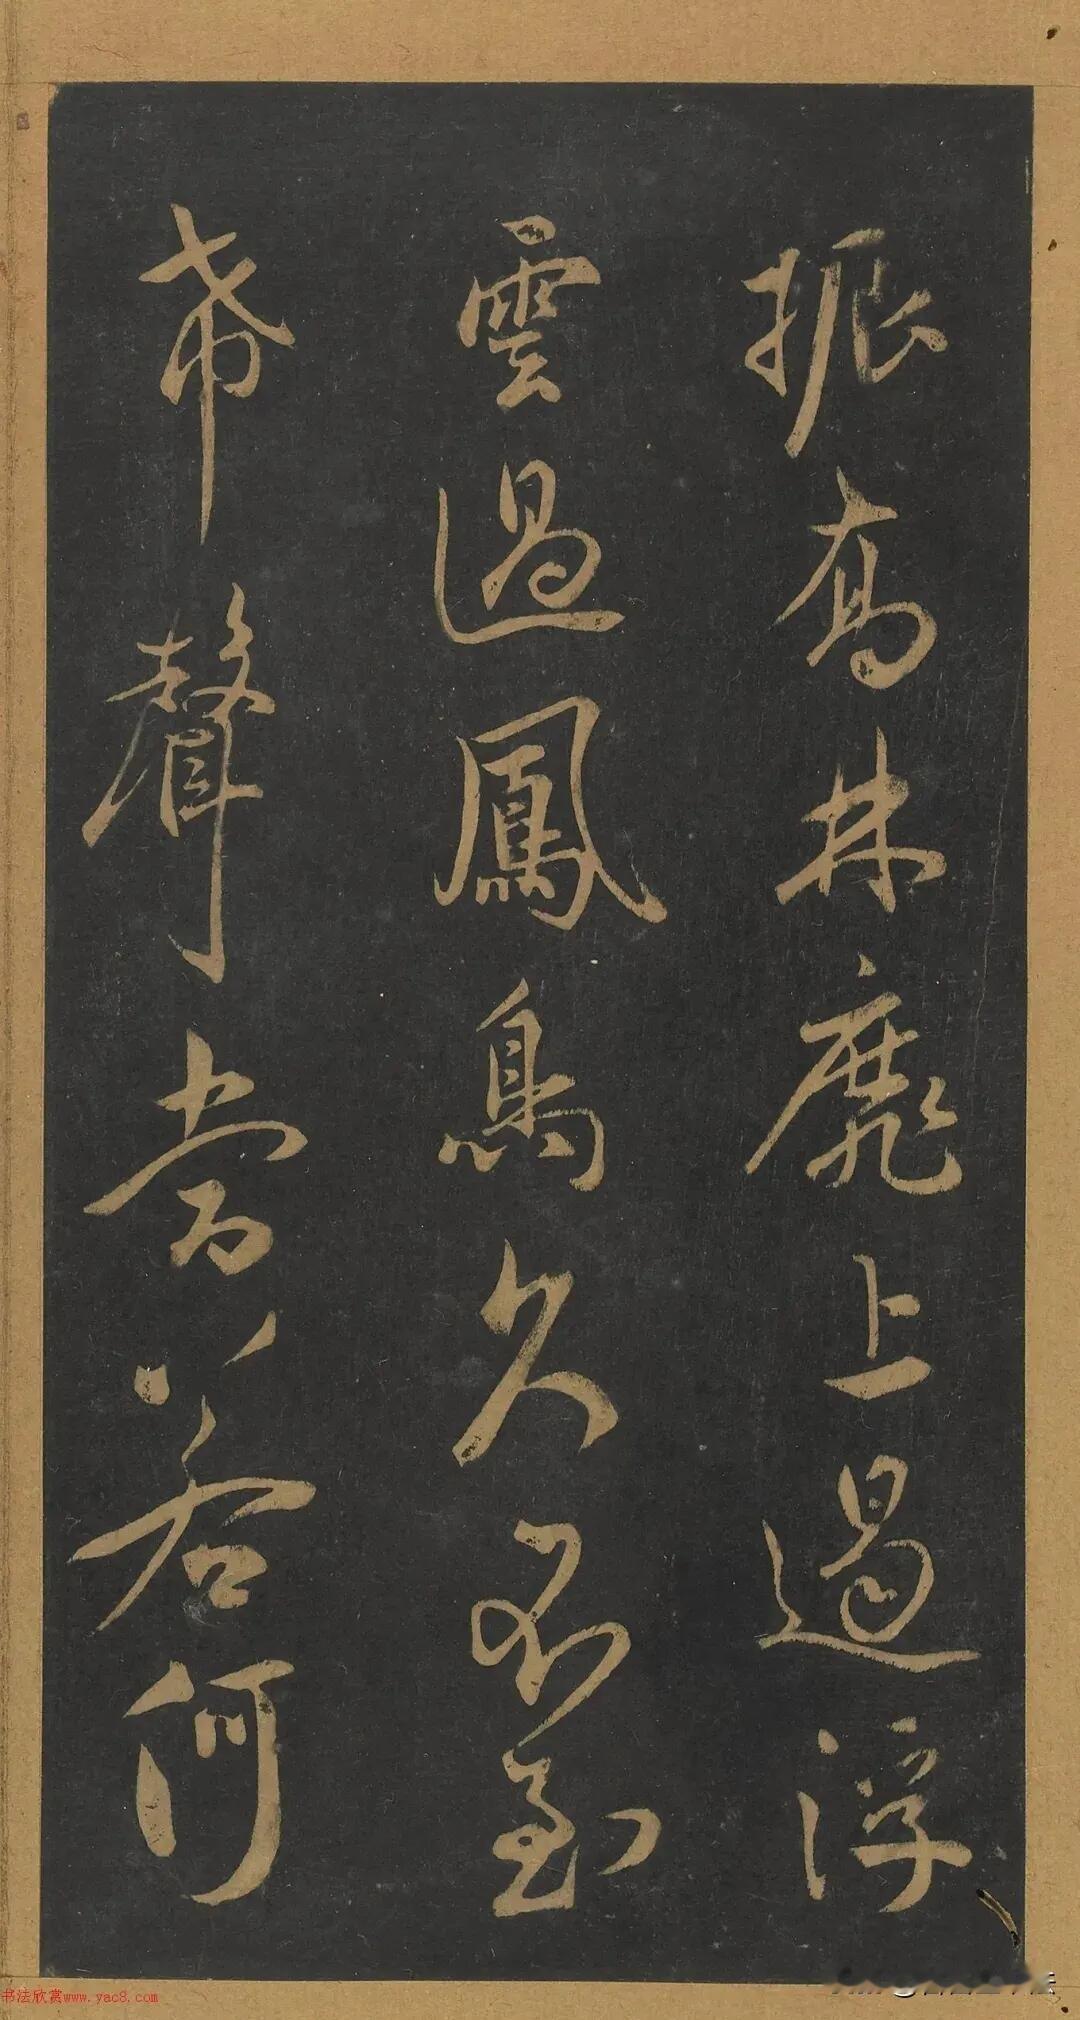 振高林靡上遏浮
雲過鳳鳥久不至
希聲若何
书法欣赏www.yac8.com